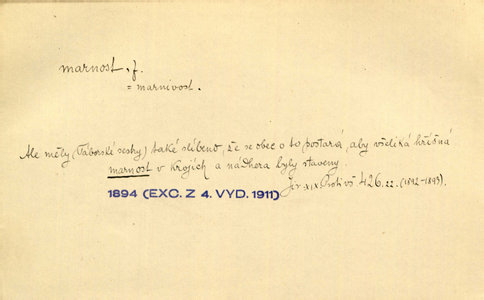 marnost, f.
= marnivost.
Ale měly (Táborské sestry) také slíbeno, že se obec o to postará, aby všeliká hříšná
marnost v krojích a nádhera byly staveny.
Jir. XIX Proti vš 426.22. (1892-1893).
1894 (EXC. Z 4. VYD. 1911)